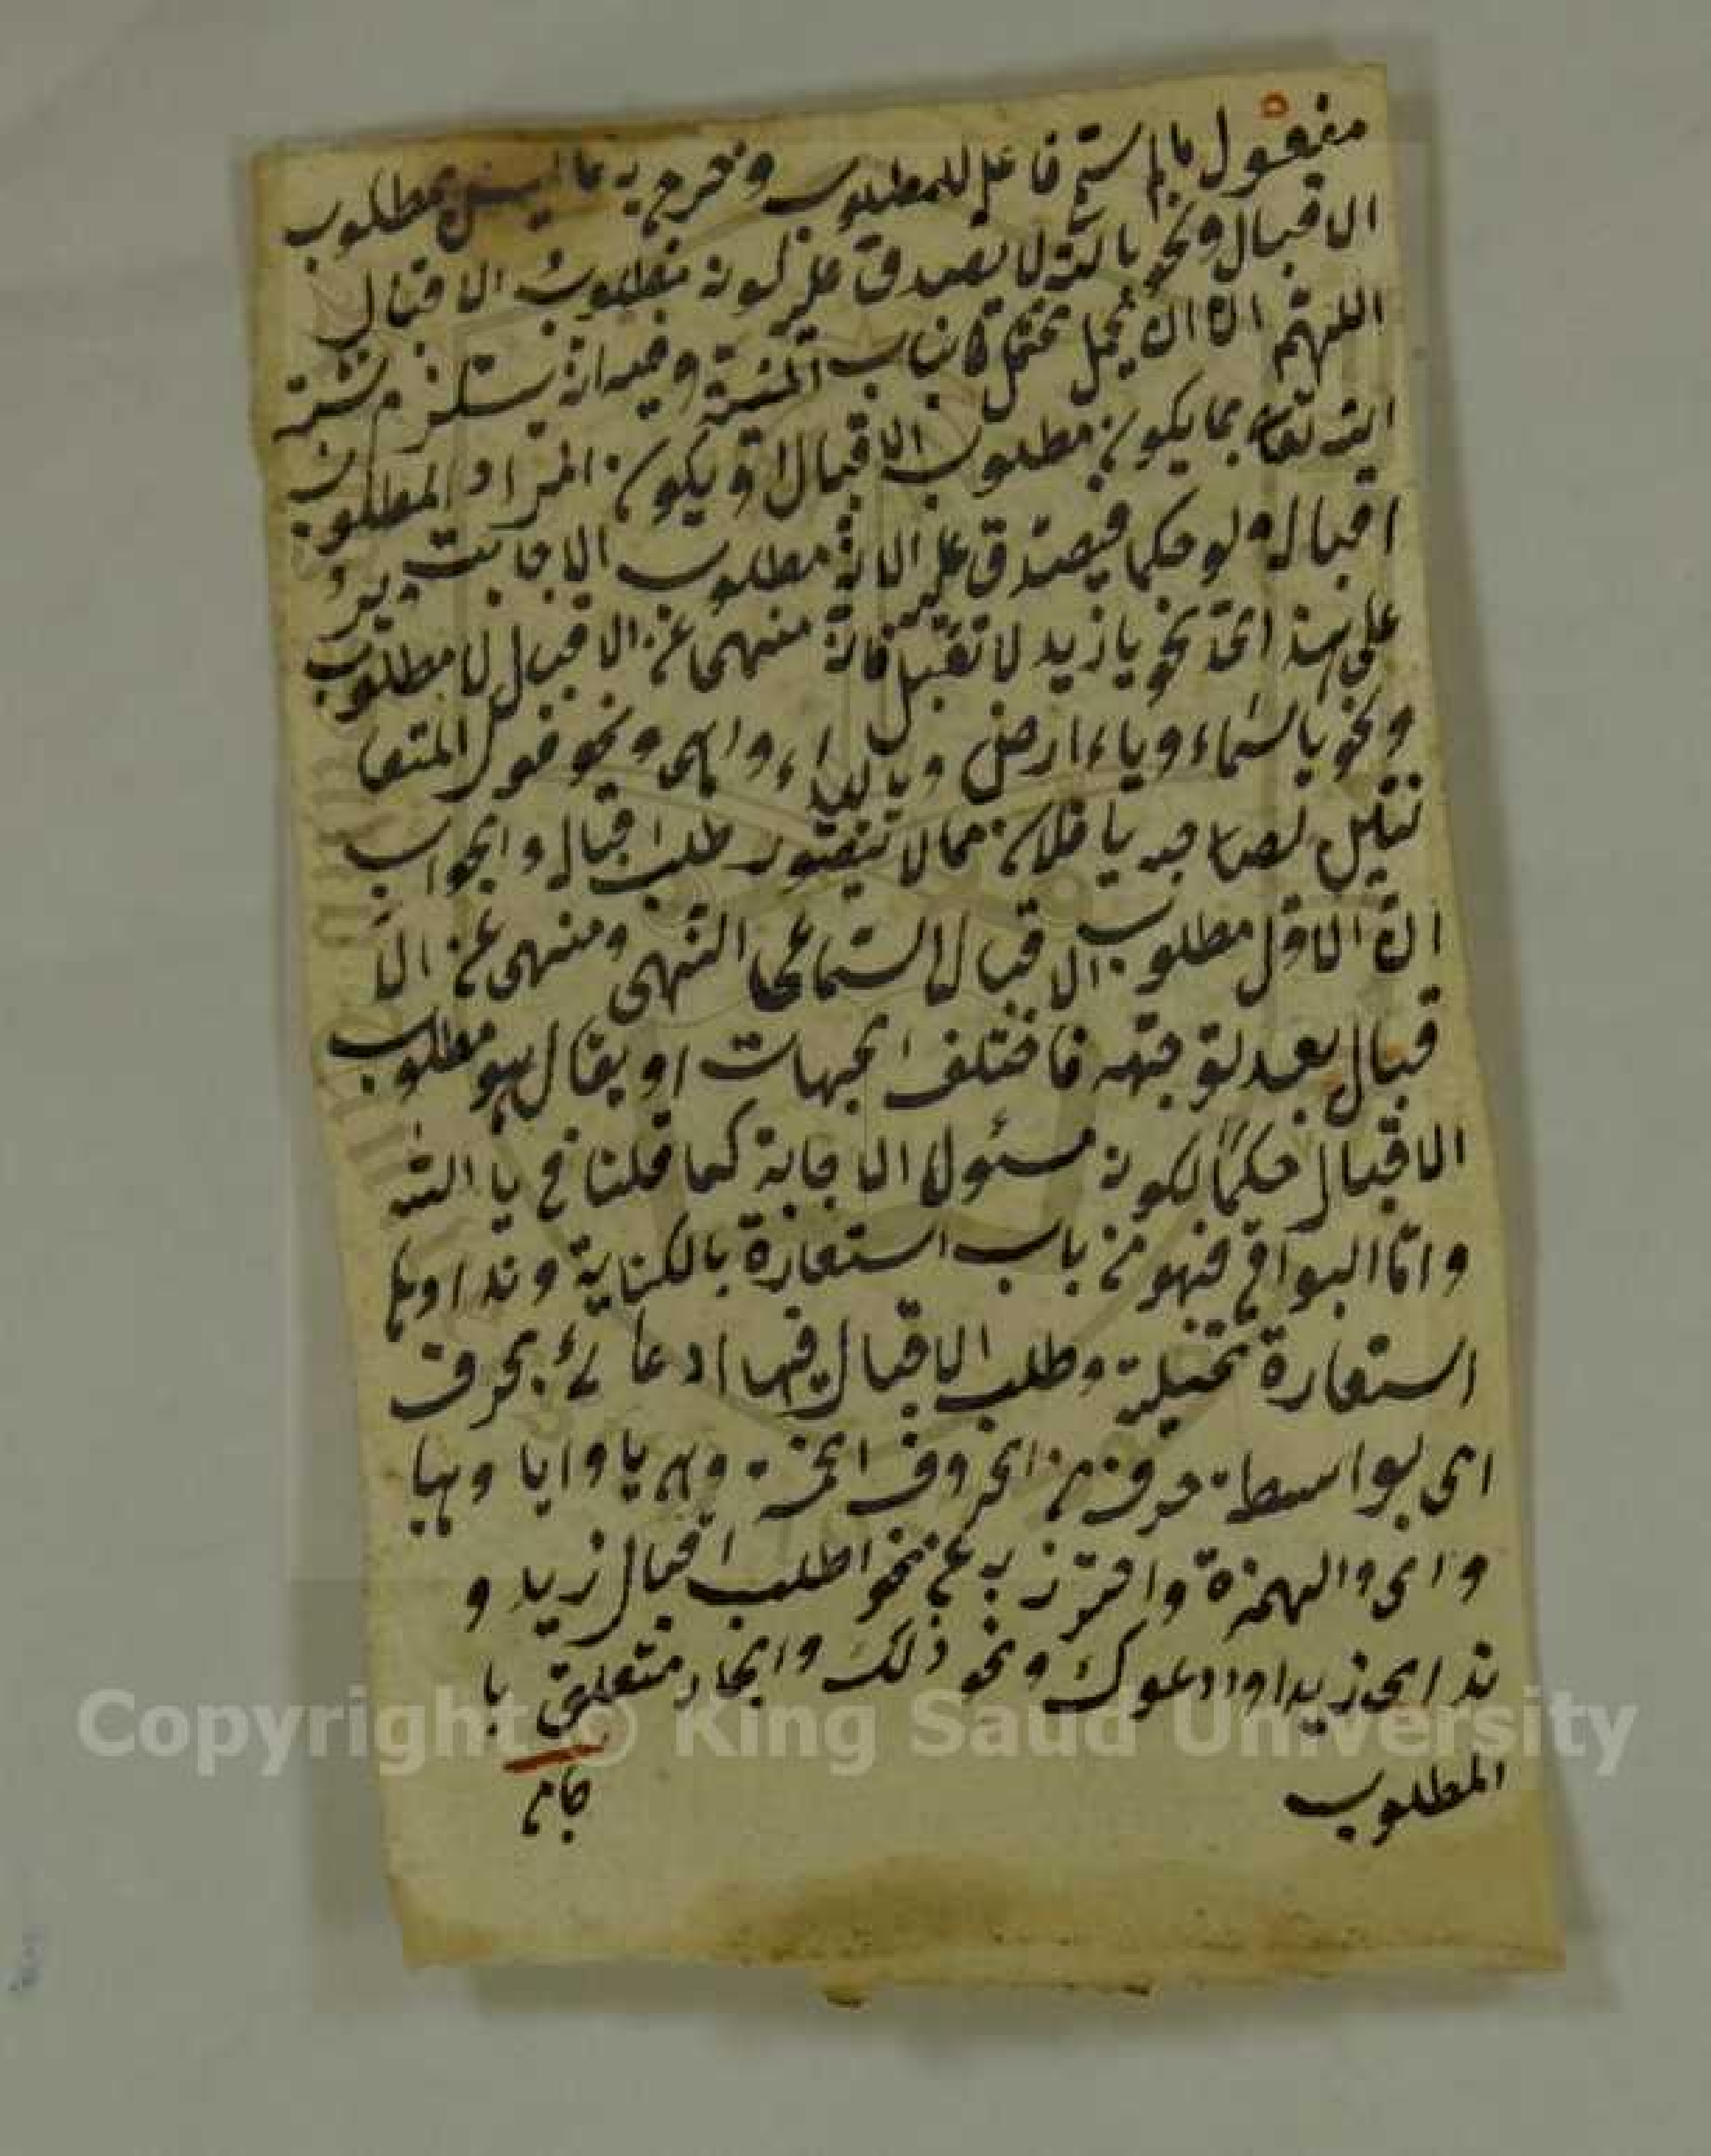 مفعول ما لم يستم فاعل للمطلوب وخرج به ما ليس بمطلوب
الاقبال ونحو يا الله لا يصدق عليه كونه مطلوب الاقبال
اللهم الا ان يحمل من باب وفيه انه يستلزم
الله تعا بما يكون مطلوب الاقبال او يكون المراد المطلوب
اقباله ولو حكما فيصدق عليه لانه مطلوب الاجابت يرد
على هذا ان نحو يا زيد لا تقبل فانه منهى عن الاقبال لا مطلوب
ونحو يا سماء ويا ارض ويا ونحو قول المتعا
نقين لصاحبه يا فلان مما لا يتصور طلب اقباله والجواب
ان الاول مطلوب الاقبال لاستماع النهى ومنهى عن الا
قبال بعد توجهه فاختلف الجهات او يقال هو مطلوب
الاقبال حكما لكونه مسئول الاجابة كما قلنا في يا الله
واما البواقي فهو من باب استعارة بالكناية وندا وها
استعارة تخييلية وطلب الاقبال فيها ادعائى بحرف
اى بواسطة حرف من الحروف الخمسة وهى يا وايا وهيا
واى والهمزة واحترز به عن نحو اطلب اقبال زيد و
ندائى زيدا وادعوك ونحو ذلك والجار متعلق با
المطلوب
جامى
Copyright © King Saud University